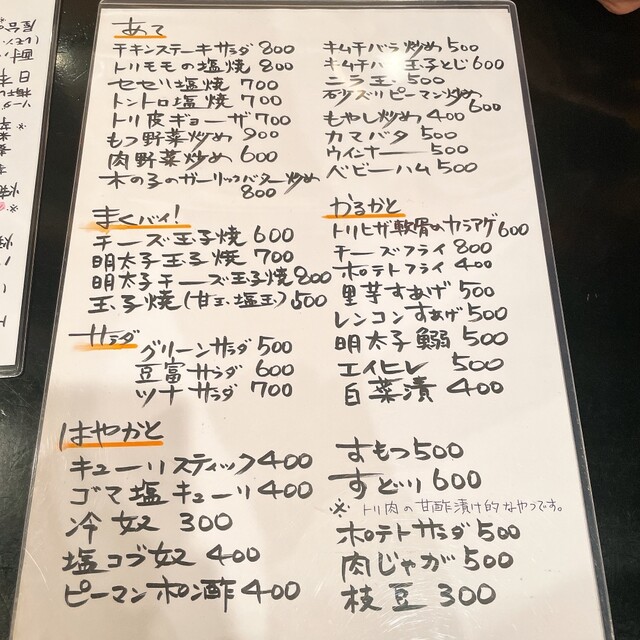 あて
チキンステーキサラダ 800
トリモモの塩焼 800
セセリ塩焼 700
トントロ塩焼 700
トリ皮ギョーザ 700
もつ野菜炒め 900
肉野菜炒め 600
木の子のガーリックバター炒め
800
キムチバラ炒め 500
キムチハ 玉子とじ 600
ニラ玉 500
砂ズリピーマン炒め
600
もやし炒め 400
カマバタ 500
ウインナー 500
ベビーハム 500
まくバイ!
チーズ玉子焼 600
明太子玉子焼 700
明太子チーズ玉子焼 800
玉子焼(甘玉、塩玉) 500
かるかと
トリヒザ軟骨のカラアゲ 600
チーズフライ 800
ポテトフライ 400
里芋すあげ 500
レンコンすあげ 500
明太子鰯 500
エイヒレ 500
白菜漬 400
サラダ
グリーンサラダ 500
豆富サラダ 600
ツナサラダ 700
はやかと
キューリスティック 400
ゴマ塩キューリ 400
冷奴 300
塩コブ奴 400
ピーマンポン酢 400
すもつ 500
すどり 600
※トリ肉の甘酢漬け的なやつです。
ポテトサラダ 500
肉じゃが 500
枝豆 300